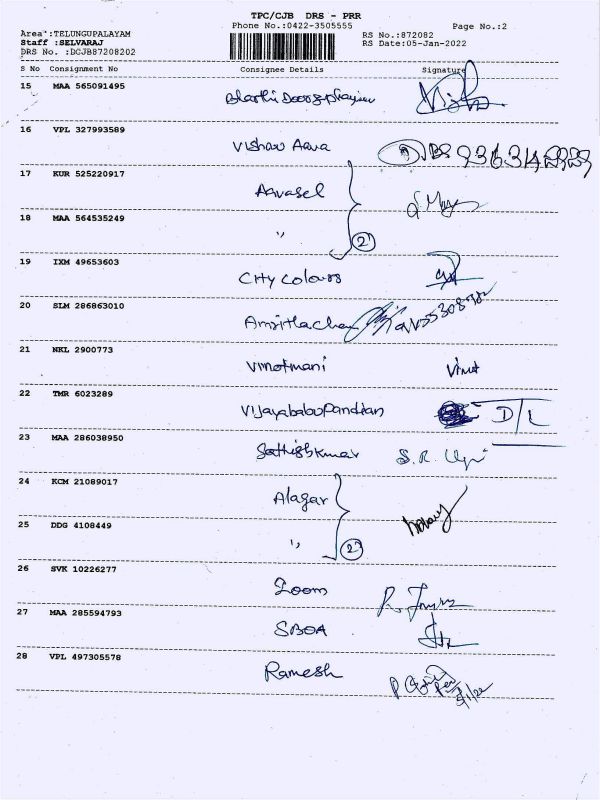 TPC/CJB DRS - PRR
Phone No.:0422-3505555
Page No.:2
Area :TELUNGUPALAYAM
Staff :SELVARAJ
DRS No. :DCJB87208202
RS No.:872082
RS Date:05-Jan-2022
S No Consignment No Consignee Details Signature
15 MAA 565091495
16 VPL 327993589 Vishnu
17 KUR 525220917 Aavasel
18 MAA 564535249 " 2
19 IXM 49653603 City Colours
20 SLM 286863010
21 NKL 2900773 Vinotmani Vinot
22 TMR 6023289 Vijayababu Pandian D/L
23 MAA 286038950 Sathishkumar S.R.
24 KCM 21089017 Alagar
25 DDG 4108449 " 2
26 SVK 10226277 Zoom
27 MAA 285594793 SBOA
28 VPL 497305578 Ramesh 5/1/22